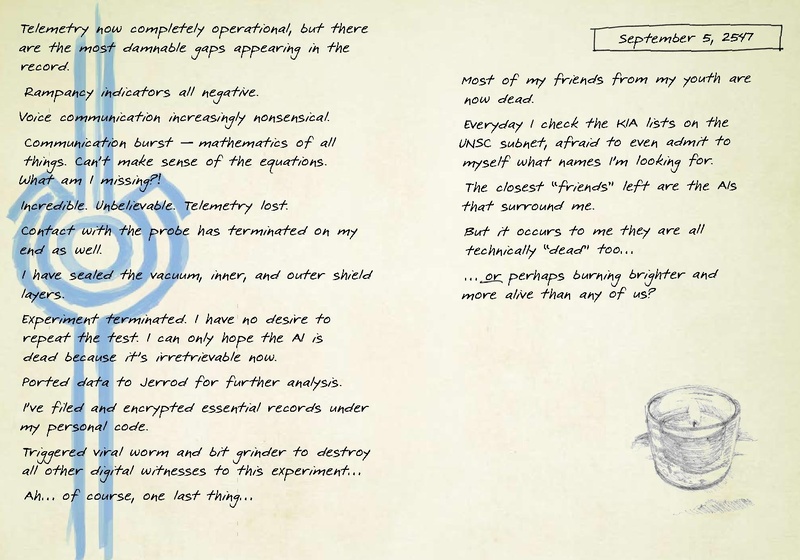 Telemetry now completely operational, but there
are the most damnable gaps appearing in the
record.
Rampancy indicators all negative.
Voice communication increasingly nonsensical.
Communication burst — mathematics of all
things. Can't make sense of the equations.
What am I missing?!
Incredible. Unbelievable. Telemetry lost.
Contact with the probe has terminated on my
end as well.
I have sealed the vacuum, inner, and outer shield
layers.
Experiment terminated. I have no desire to
repeat the test. I can only hope the AI is
dead because it's irretrievable now.
Ported data to Jerrod for further analysis.
I've filed and encrypted essential records under
my personal code.
Triggered viral worm and bit grinder to destroy
all other digital witnesses to this experiment...
Ah... of course, one last thing...
September 5, 2547
Most of my friends from my youth are
now dead.
Everyday I check the KIA lists on the
UNSC subnet, afraid to even admit to
myself what names I'm looking for.
The closest "friends" left are the AIs
that surround me.
But it occurs to me they are all
technically "dead" too...
...or perhaps burning brighter and
more alive than any of us?